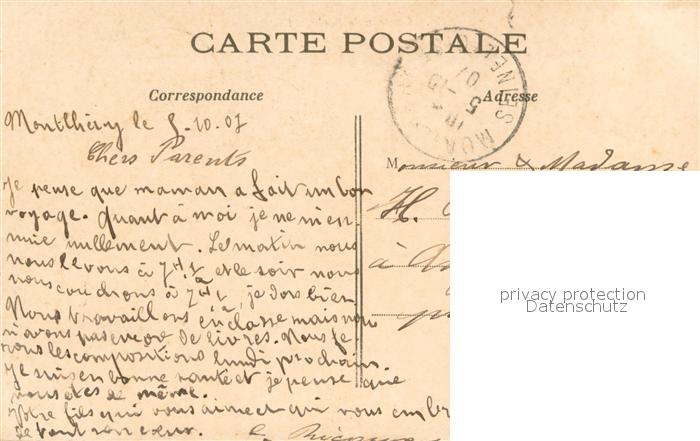 CARTE POSTALE
Correspondance
Adresse
Montlhéry le 5.10.07
Chers Parents
Je pense que maman a fait un bon
voyage. Quant à moi je ne m'en
nuie nullement. Le matin nous
nous levons à 7H ½ et le soir nous
nous couchons à 7H ½, je dors bien.
Nous travaillons en classe mais nou
n'avons pas encore de livres. Nous fe
rons les compositions lundi prochain.
Je suis en bonne santé et je pense que
vous etes de même.
Votre fils qui vous aime et qui vous emb
de tout son cœur.
Monsieur & Madame
H.
à
privacy protection
Datenschutz